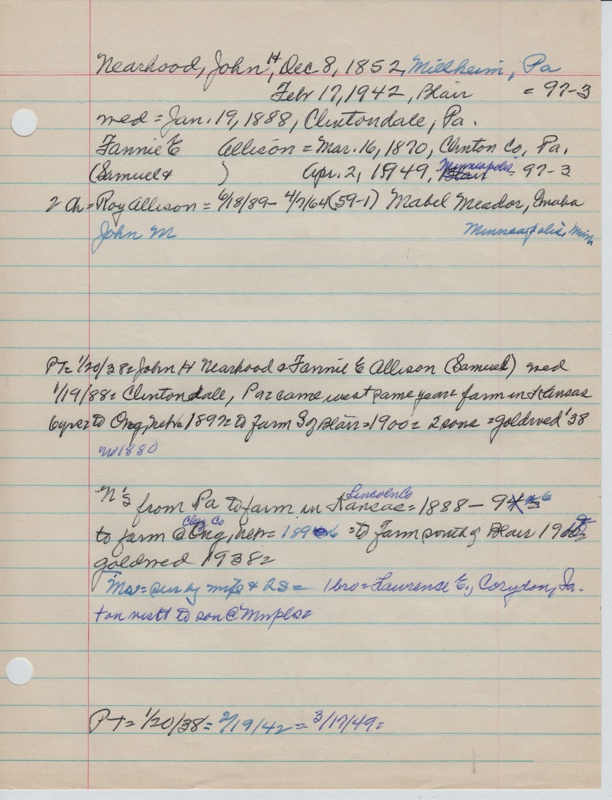 Nearhood, John H, Dec 8, 1852, Millheim, Pa
Febr 17, 1942, Blair = 97-3
wed = Jan. 19, 1888, Clintondale, Pa.
Fannie E Allison = Mar. 16, 1870, Clinton Co, Pa.
Minneapolis
(Samuel & ) Apr. 2, 1949, Blair = 97-3
2 Ch = Roy Allison = 6/18/89 - 4/7/64 (59-1) Mabel Meador, Omaha
John M Minneapolis, Minn
PT = 1/20/38 = John H Nearhood & Fannie E Allison (Samuel) wed
1/19/88 = Clintondale, Pa = came west same year = farm in Kansas
6 yrs = to Ong, Neb 1897 = to farm S of Blair = 1900 = 2 sons = goldwed '38
1880
N's from Pa to farm in Kansas = 1888 - 9
Lincoln Co
Clay Co
to farm @ Ong, Nebr = 1896 = to farm south of Blair 19
goldwed 1938 =
Mr = sur by wife & 2 S = 1 bro = Lawrence E., Corydon, Ia.
+ on visit to son @ Mnpls =
PT = 1/20/38 = 2/19/42 = 3/17/49 =